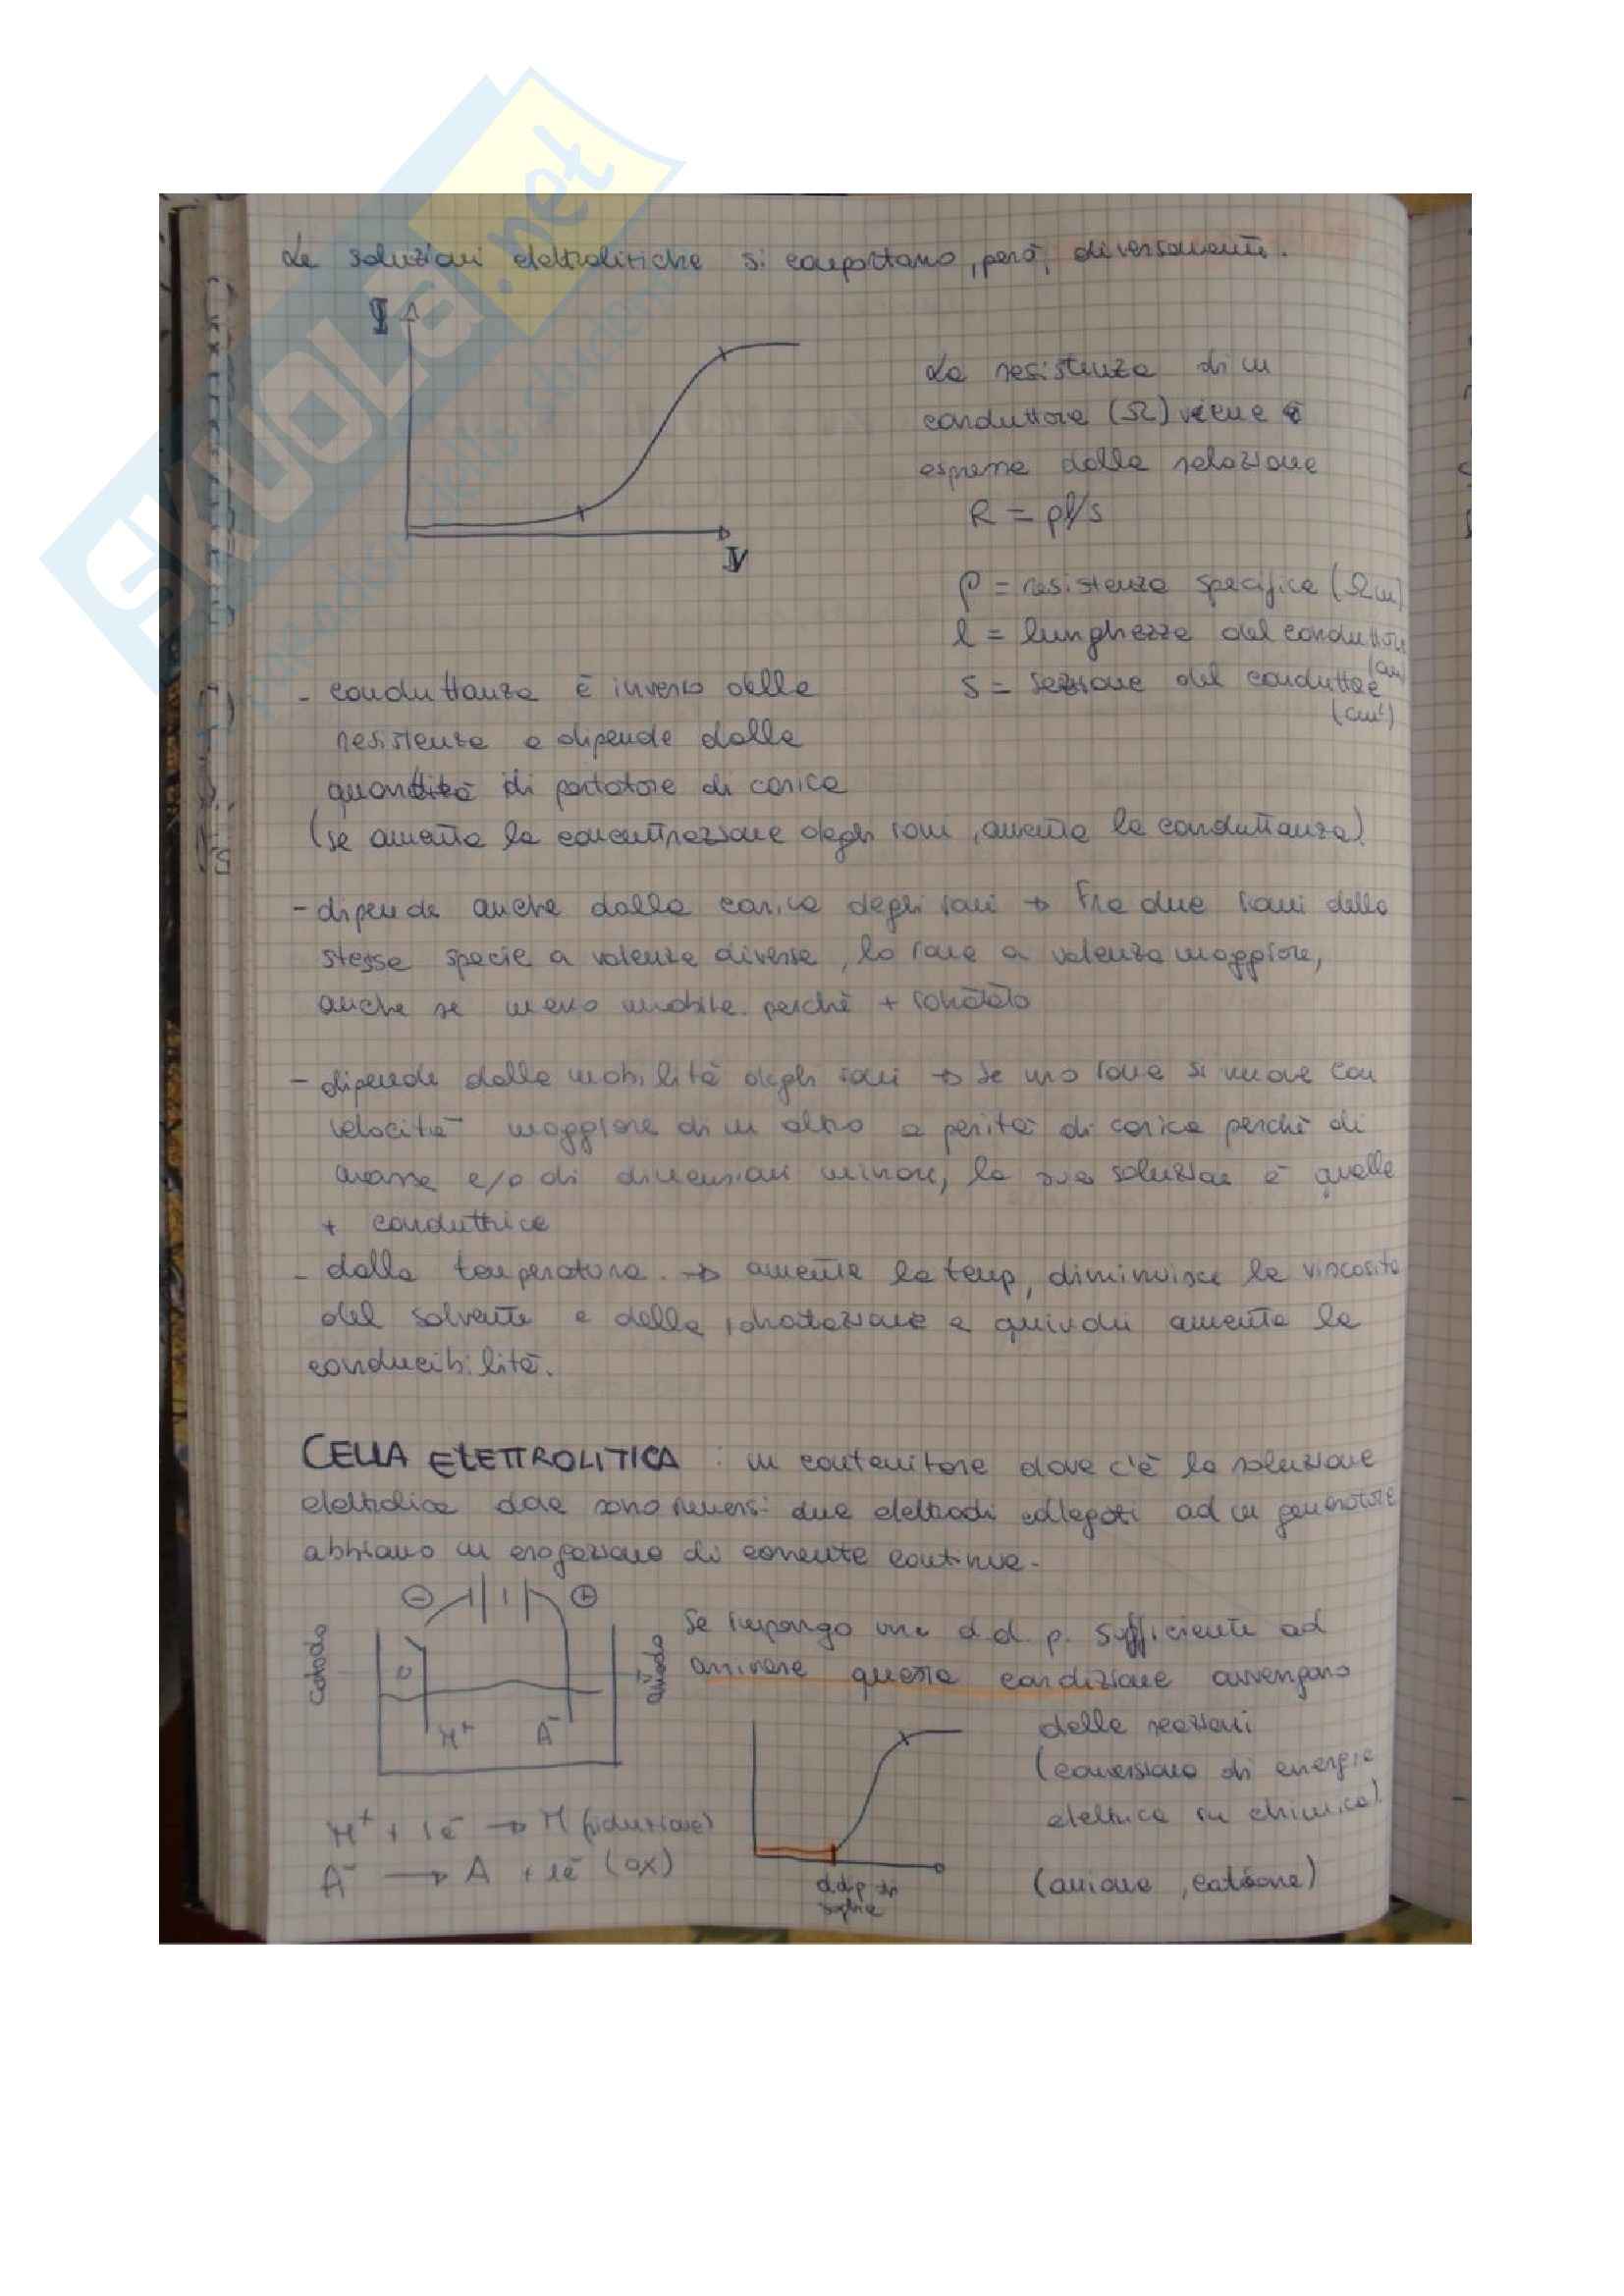 Le soluzioni elettrolitiche si comportano, però, diversamente.
I
V
La resistenza di un
conduttore (Ω) viene
espressa dalla relazione
R = ρl/s
ρ = resistenza specifica (Ωcm)
l = lunghezza del conduttore
(cm)
s = sezione del conduttore
(cm²)
- conduttanza è inverso della
resistenza e dipende dalla
quantità di portatore di carica
(se aumenta la concentrazione degli ioni, aumenta la conduttanza)
- dipende anche dalla carica degli ioni → Fra due ioni della
stessa specie a valenza diversa, lo ione a valenza maggiore,
anche se meno mobile perchè + idratato
- dipende dalla mobilità degli ioni → se uno ione si muove con
velocità maggiore di un altro a parità di carica perchè di
massa e/o di dimensioni minori, la sua soluzione è quella
+ conduttrice
- dalla temperatura → aumenta la temp, diminuisce la viscosità
del solvente e della idratazione e quindi aumenta la
conducibilità.
CELLA ELETTROLITICA : un contenitore dove c'è la soluzione
elettrolica dove sono immersi due elettrodi collegati ad un generatore
abbiamo un erogazione di corrente continua.
⊖ ⊕
catodo
anodo
M⁺ A⁻
Se impongo una d.d.p. sufficiente ad
arrivare questa condizione avvengono
delle reazioni
(conversione di energia
elettrica in chimica)
M⁺ + 1e⁻ → M (riduzione)
A⁻ → A + 1e⁻ (ox)
d.d.p di
soglia
(anione, catione)
SKUOLA.net